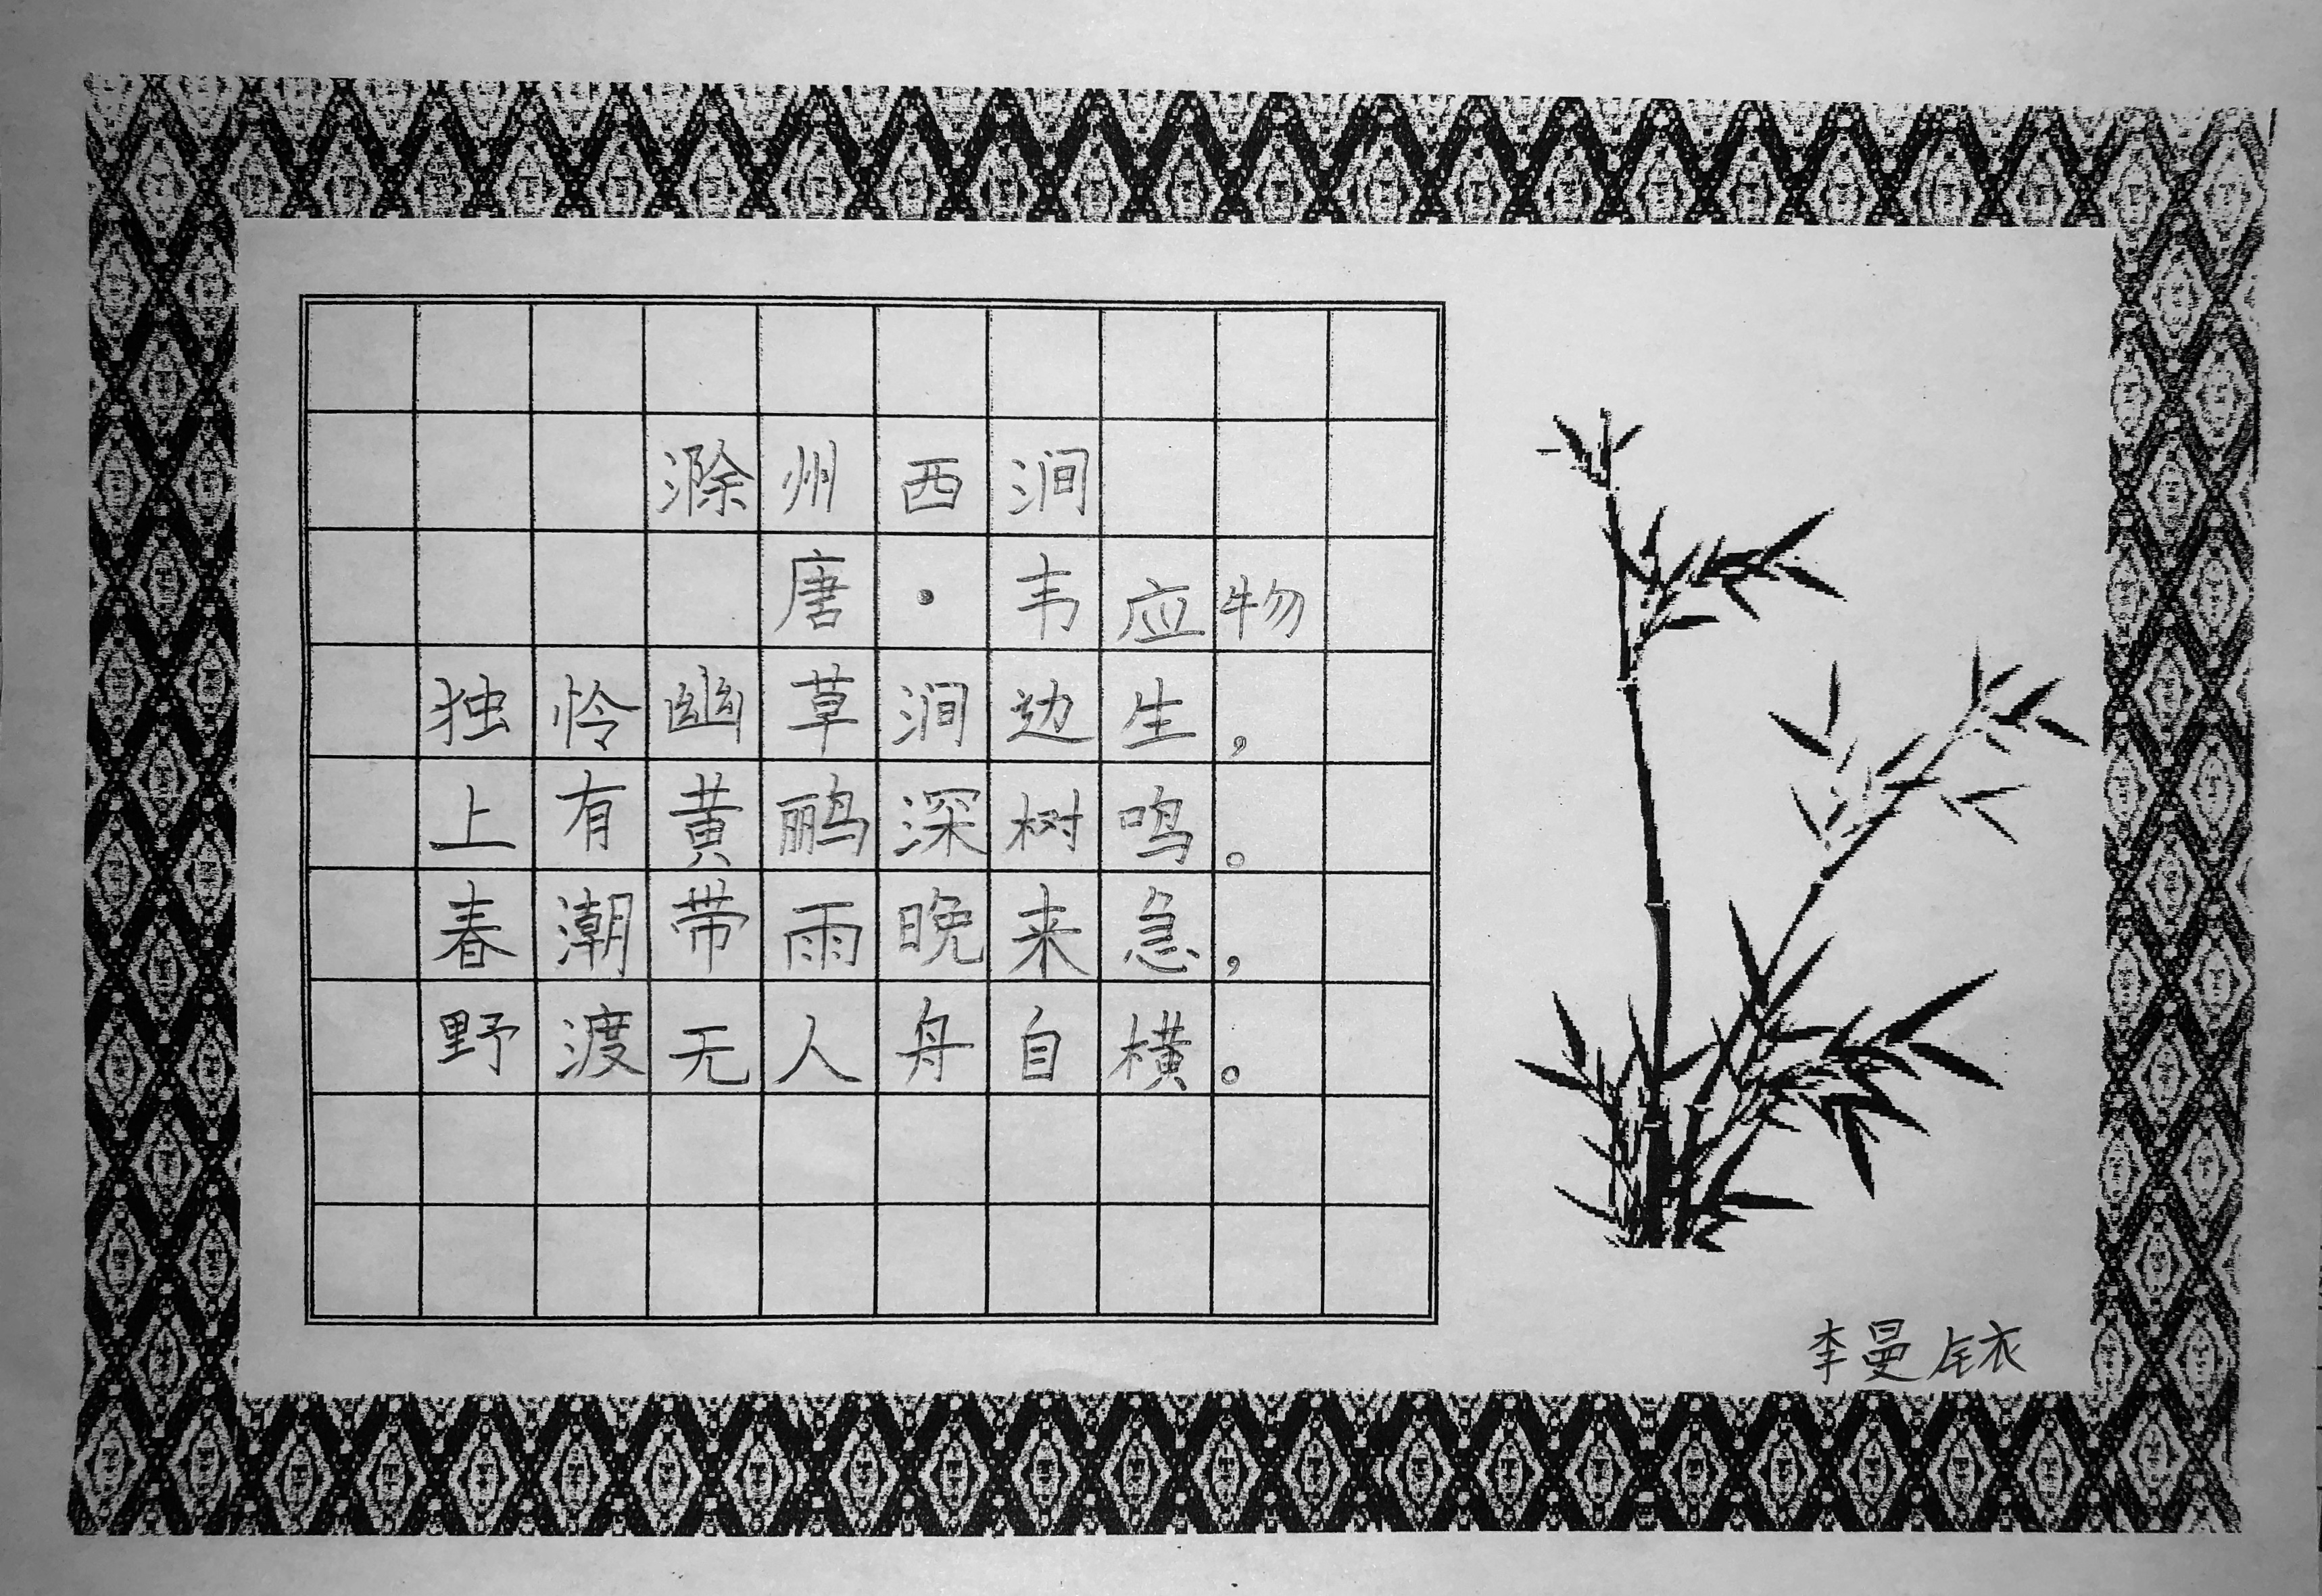 滁州西涧
唐·韦应物
独怜幽草涧边生，
上有黄鹂深树鸣。
春潮带雨晚来急，
野渡无人舟自横。
李曼